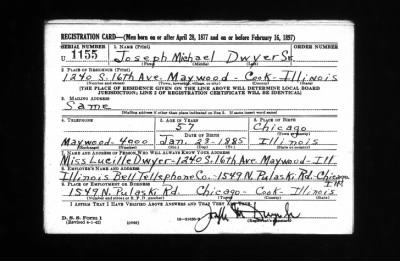 REGISTRATION CARD—(Men born on or after April 28, 1877 and on or before February 16, 1897)
SERIAL NUMBER 1. NAME (Print) ORDER NUMBER
U 1155 Joseph Michael Dwyer Sr.
(First) (Middle) (Last)
2. PLACE OF RESIDENCE (Print)
1240 S. 16th Ave. Maywood - Cook - Illinois
(Number and street) (Town, township, village, or city) (County) (State)
[THE PLACE OF RESIDENCE GIVEN ON THE LINE ABOVE WILL DETERMINE LOCAL BOARD
JURISDICTION; LINE 2 OF REGISTRATION CERTIFICATE WILL BE IDENTICAL]
3. MAILING ADDRESS
Same
[Mailing address if other than place indicated on line 2. If same insert word same]
4. TELEPHONE 5. AGE IN YEARS 6. PLACE OF BIRTH
57 Chicago
DATE OF BIRTH (Town or county)
Maywood - 4900 Jan. 23 - 1885 Illinois
(Exchange) (Number) (Mo.) (Day) (Yr.) (State or country)
7. NAME AND ADDRESS OF PERSON WHO WILL ALWAYS KNOW YOUR ADDRESS
Miss Lucille Dwyer - 1240 S. 16th Ave. Maywood - Ill.
8. EMPLOYER'S NAME AND ADDRESS
Illinois Bell Tellephone Co. - 1549 N. Pulaski Rd. - Chicago
Ill
9. PLACE OF EMPLOYMENT OR BUSINESS
1549 N. Pulaski Rd. Chicago - Cook - Illinois
(Number and street or R. F. D. number) (Town) (County) (State)
I AFFIRM THAT I HAVE VERIFIED ABOVE ANSWERS AND THAT THEY ARE TRUE.
D. S. S. Form 1
(Revised 4-1-42) (over)